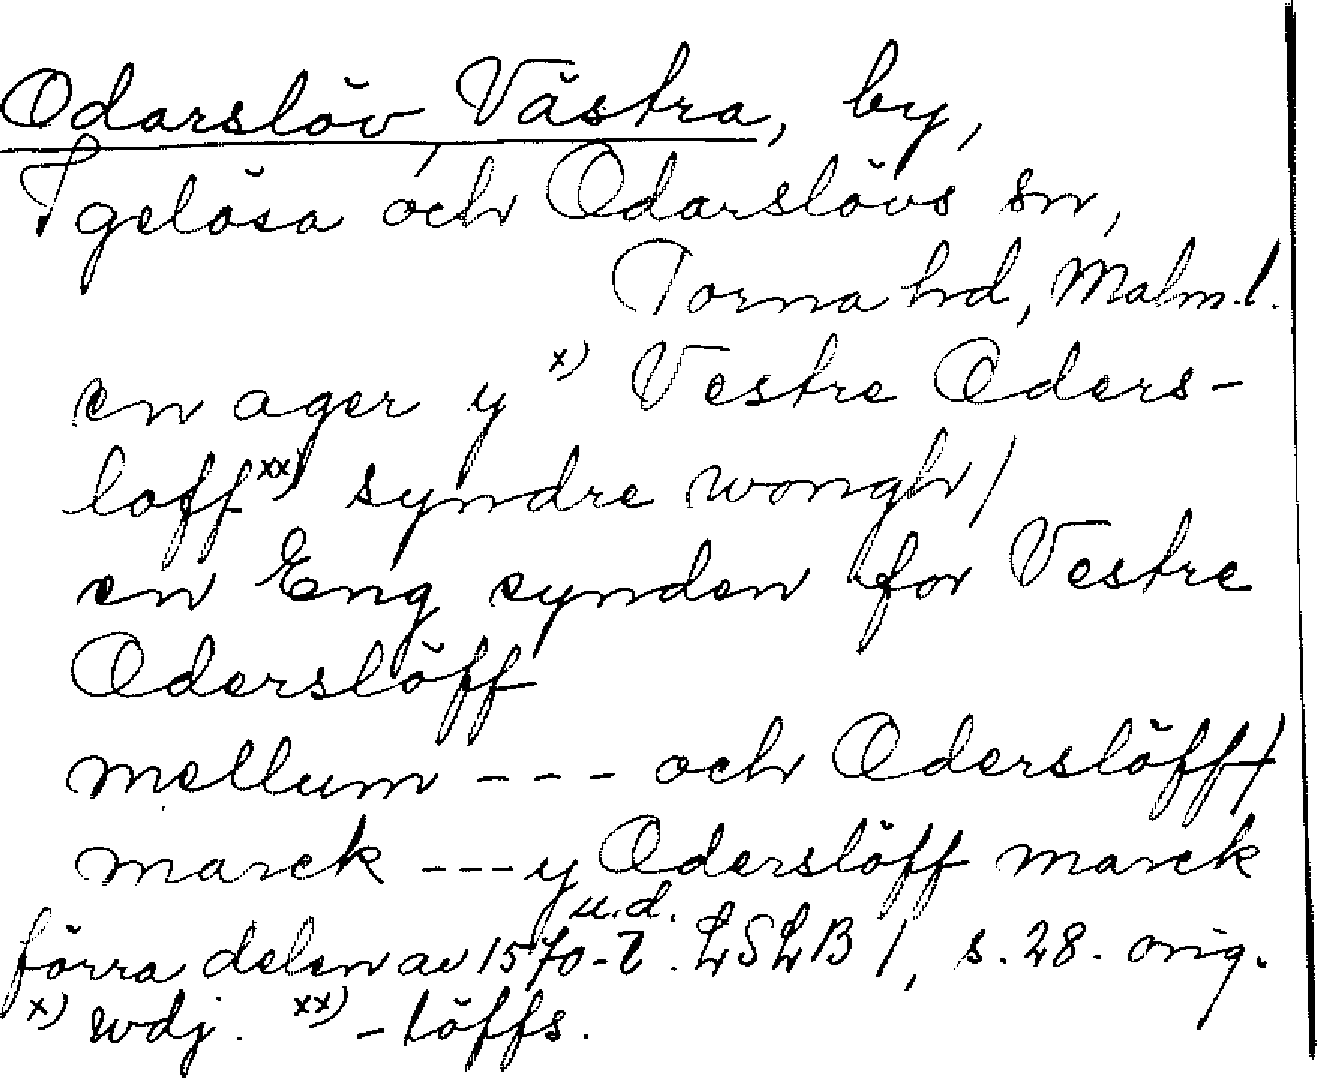 Odarslöv, Västra, by,
Igelösa och Odarslövs sn,
Torna hd, Malm. l.
en ager y x) Vestre Oders-
loff xx) syndre wongh/
en Eng synden for Vestre
Oderslöff
mellum - - - och Oderslöff/
marck - - - y Oderslöff marck
u.d.
förra delen av 1570-t. LSLB 1, s. 28. orig.
x) wdj. xx) -löffs.